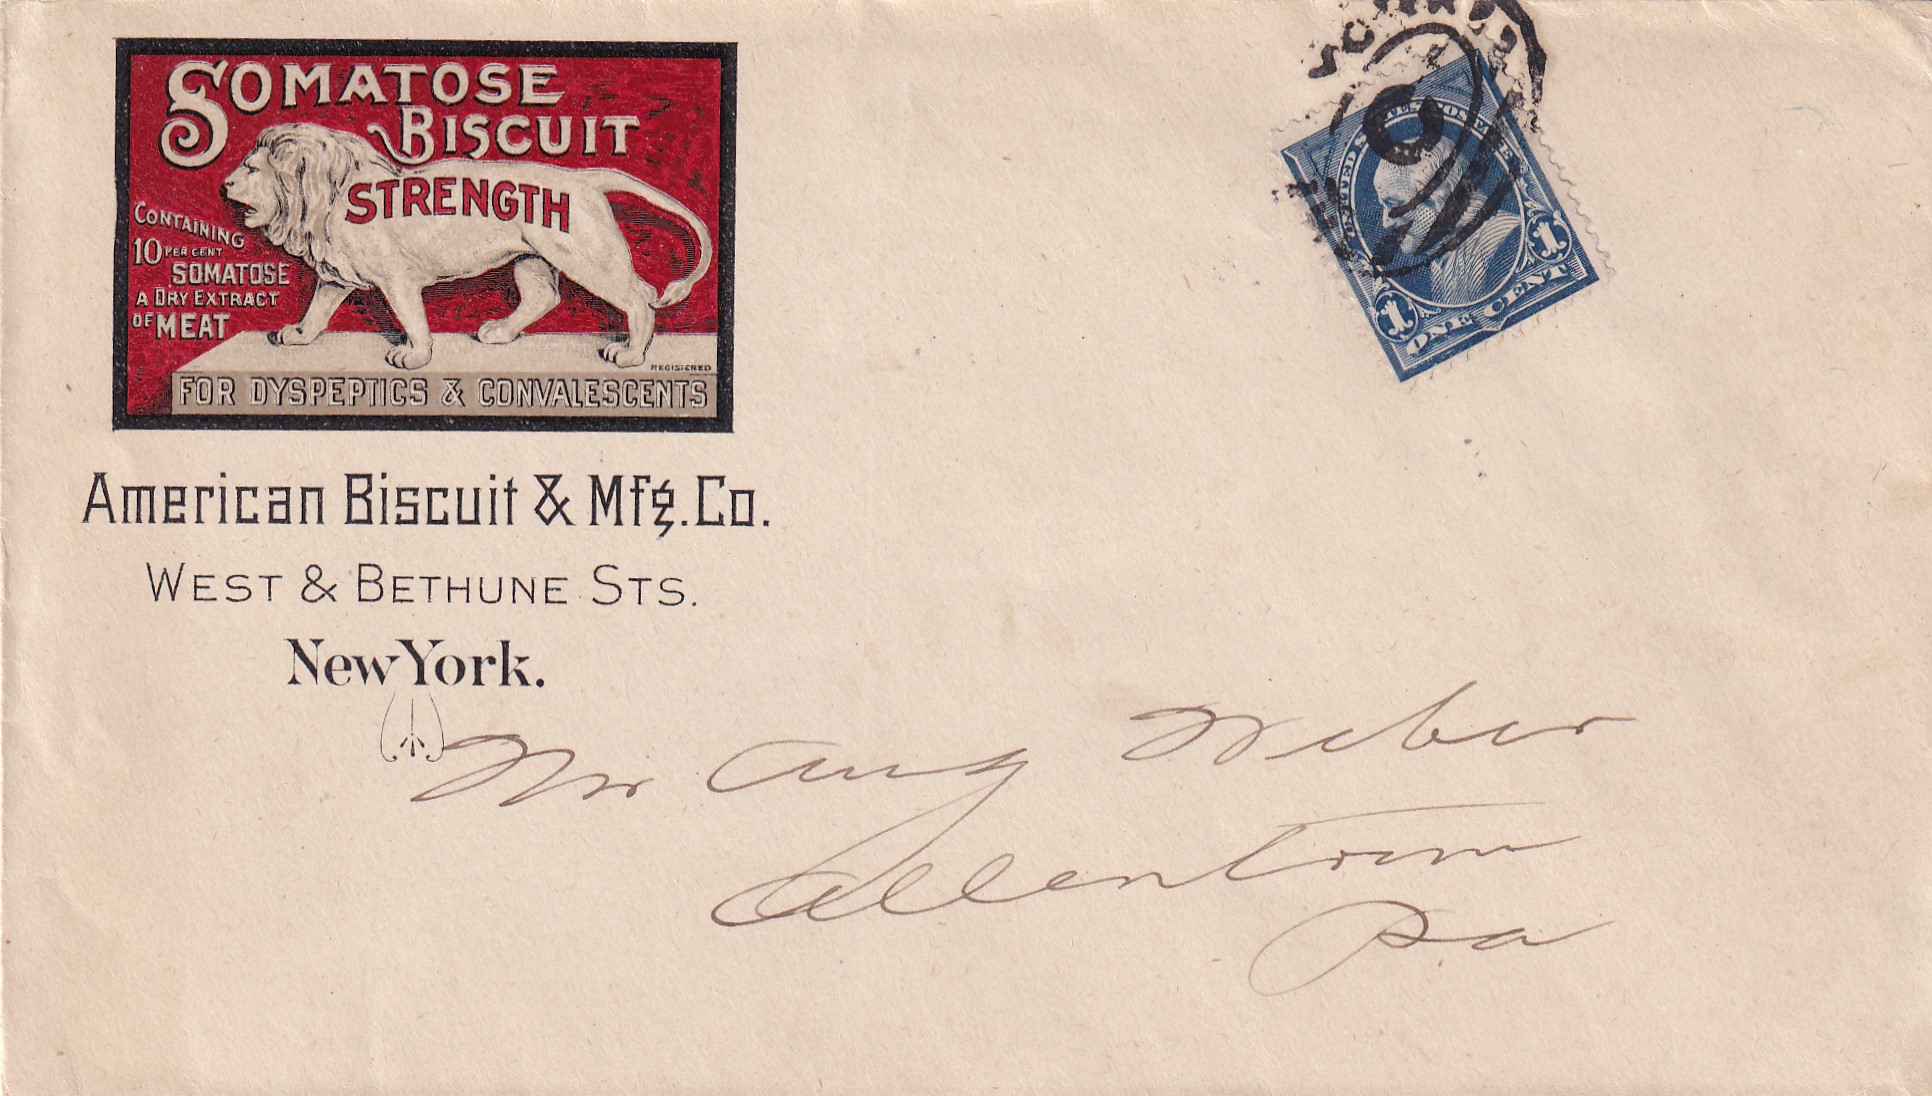 SOMATOSE
BISCUIT
STRENGTH
CONTAINING
10 PER CENT
SOMATOSE
A DRY EXTRACT
OF MEAT
REGISTERED
FOR DYSPEPTICS & CONVALESCENTS
American Biscuit & Mfg. Co.
WEST & BETHUNE STS.
New York.
UNITED STATES POSTAGE
1 1
ONE CENT
Mr Aug Weber
Allentown
Pa